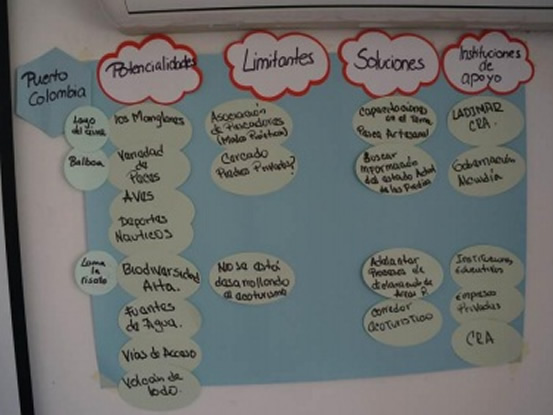 Puerto
Colombia
Potencialidades
Limitantes
Soluciones
Instituciones
de
apoyo
Lago
del
Balboa
los Manglares
Variedad
de
Peces
Aves
Deportes
Nauticos
Asociación
de Pescadores
Cercado
Predios Privados?
Capacitaciones
en el Tema
Pesca Artesanal
Buscar
Información
del estado Actual
de los Predios
LADIMAR
CRA.
Gobernación
Alcaldía
Loma
la
risota
Biodiversidad
Alta.
Fuentes
de Agua.
Vías de Acceso
Volcán de
lodo.
No se está
desarrollando
el ecoturismo
Adelantar
Procesos de
Corredor
ecoturistico
Instituciones
Educativas
Empresas
Privadas
CRA